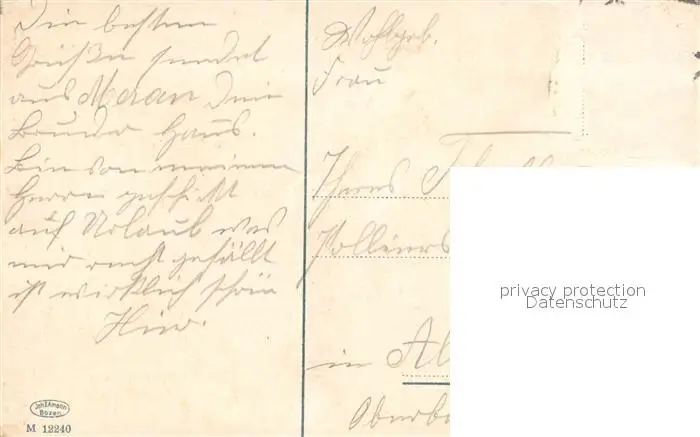 Die besten
Grüße sendet
aus Meran Dein
Bruder Hans.
Bin von meinem
Herrn geschickt
auf Urlaub was
mir recht gefällt
ist wirklich schön
Hier.
Wohlgeb.
Frau
in Al
Oberb
privacy protection
Datenschutz
Joh. F. Amonn
Bozen
M 12240